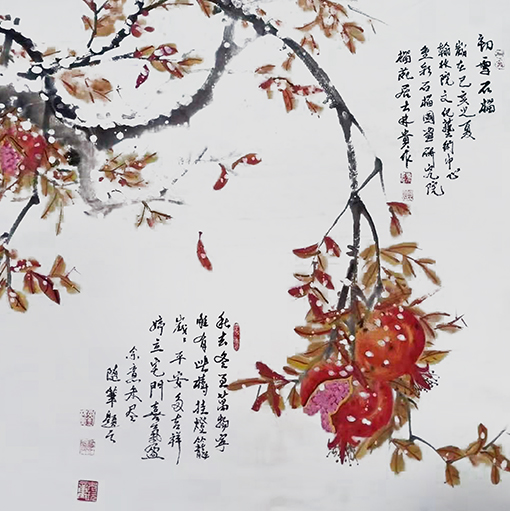 初雪石榴
歲在己亥之夏
翰林院文化藝術中心
重彩石榴國畫研究院
榴苑居士林貴作
秋去冬至
唯有此樹挂燈籠
歲歲平安多吉祥
婷立宅門喜氣盈
余意未尽
隨筆題之